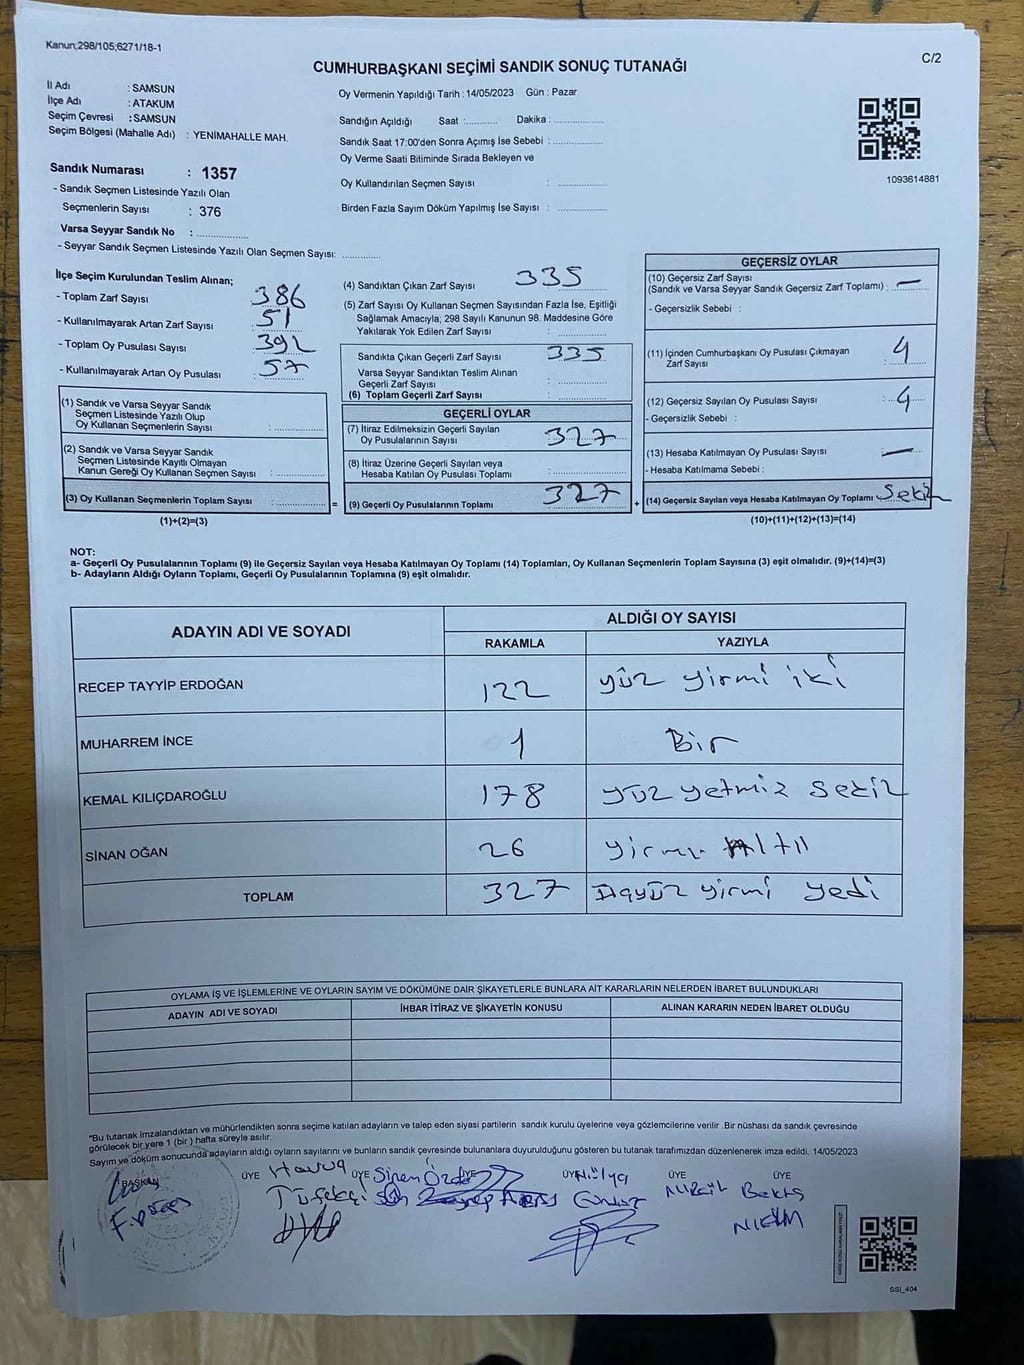 Kanun;298/105;6271/18-1
C/2
CUMHURBAŞKANI SEÇİMİ SANDIK SONUÇ TUTANAĞI
İl Adı : SAMSUN
İlçe Adı : ATAKUM
Seçim Çevresi : SAMSUN
Seçim Bölgesi (Mahalle Adı) : YENİMAHALLE MAH.
Sandık Numarası : 1357
- Sandık Seçmen Listesinde Yazılı Olan
Seçmenlerin Sayısı : 376
Varsa Seyyar Sandık No : ..............
- Seyyar Sandık Seçmen Listesinde Yazılı Olan Seçmen Sayısı: ............
Oy Vermenin Yapıldığı Tarih : 14/05/2023 Gün : Pazar
Sandığın Açıldığı Saat :.......... Dakika : ................
Sandık Saat 17:00'den Sonra Açımış İse Sebebi : ................
Oy Verme Saati Bitiminde Sırada Bekleyen ve
Oy Kullandırılan Seçmen Sayısı : ................
Birden Fazla Sayım Döküm Yapılmış İse Sayısı : ................
1093614881
İlçe Seçim Kurulundan Teslim Alınan;
- Toplam Zarf Sayısı : 386
- Kullanılmayarak Artan Zarf Sayısı : 51
- Toplam Oy Pusulası Sayısı : 392
- Kullanılmayarak Artan Oy Pusulası : 57
(1) Sandık ve Varsa Seyyar Sandık
Seçmen Listesinde Yazılı Olup
Oy Kullanan Seçmenlerin Sayısı : ................
(2) Sandık ve Varsa Seyyar Sandık
Seçmen Listesinde Kayıtlı Olmayan
Kanun Gereği Oy Kullanan Seçmen Sayısı : ................
(3) Oy Kullanan Seçmenlerin Toplam Sayısı : ................
(1)+(2)=(3)
(4) Sandıktan Çıkan Zarf Sayısı : 335
(5) Zarf Sayısı Oy Kullanan Seçmen Sayısından Fazla İse, Eşitliği
Sağlamak Amacıyla; 298 Sayılı Kanunun 98. Maddesine Göre
Yakılarak Yok Edilen Zarf Sayısı : ................
Sandıkta Çıkan Geçerli Zarf Sayısı : 335
Varsa Seyyar Sandıktan Teslim Alınan
Geçerli Zarf Sayısı : ................
(6) Toplam Geçerli Zarf Sayısı : ................
GEÇERLİ OYLAR
(7) İtiraz Edilmeksizin Geçerli Sayılan
Oy Pusulalarının Sayısı : 327
(8) İtiraz Üzerine Geçerli Sayılan veya
Hesaba Katılan Oy Pusulası Toplamı : ................
= (9) Geçerli Oy Pusulalarının Toplamı : 327
GEÇERSİZ OYLAR
(10) Geçersiz Zarf Sayısı
(Sandık ve Varsa Seyyar Sandık Geçersiz Zarf Toplamı) : —
- Geçersizlik Sebebi :
(11) İçinden Cumhurbaşkanı Oy Pusulası Çıkmayan
Zarf Sayısı : 4
(12) Geçersiz Sayılan Oy Pusulası Sayısı : 4
- Geçersizlik Sebebi :
(13) Hesaba Katılmayan Oy Pusulası Sayısı : —
- Hesaba Katılmama Sebebi :
+ (14) Geçersiz Sayılan veya Hesaba Katılmayan Oy Toplamı : Sekiz
(10)+(11)+(12)+(13)=(14)
NOT:
a- Geçerli Oy Pusulalarının Toplamı (9) ile Geçersiz Sayılan veya Hesaba Katılmayan Oy Toplamı (14) Toplamları, Oy Kullanan Seçmenlerin Toplam Sayısına (3) eşit olmalıdır. (9)+(14)=(3)
b- Adayların Aldığı Oyların Toplamı, Geçerli Oy Pusulalarının Toplamına (9) eşit olmalıdır.
ADAYIN ADI VE SOYADI ALDIĞI OY SAYISI
RAKAMLA YAZIYLA
RECEP TAYYİP ERDOĞAN 122 yüz yirmi iki
MUHARREM İNCE 1 Bir
KEMAL KILIÇDAROĞLU 178 yüz yetmiz sekiz
SİNAN OĞAN 26 yirmi Altı
TOPLAM 327 üçyüz yirmi yedi
OYLAMA İŞ VE İŞLEMLERİNE VE OYLARIN SAYIM VE DÖKÜMÜNE DAİR ŞİKAYETLERLE BUNLARA AİT KARARLARIN NELERDEN İBARET BULUNDUKLARI
ADAYIN ADI VE SOYADI İHBAR İTİRAZ VE ŞİKAYETİN KONUSU ALINAN KARARIN NEDEN İBARET OLDUĞU
*Bu tutanak imzalandıktan ve mühürlendikten sonra seçime katılan adayların ve talep eden siyasi partilerin sandık kurulu üyelerine veya gözlemcilerine verilir .Bir nüshası da sandık çevresinde
görülecek bir yere 1 (bir ) hafta süreyle asılır.
Sayım ve döküm sonucunda adayların aldığı oyların sayılarını ve bunların sandık çevresinde bulunanlara duyurulduğunu gösteren bu tutanak tarafımızdan düzenlenerek imza edildi. 14/05/2023
BAŞKAN ÜYE ÜYE ÜYE ÜYE ÜYE ÜYE
Havva Sinem Hülya
Tüfekçi Bektaş
SSI_404